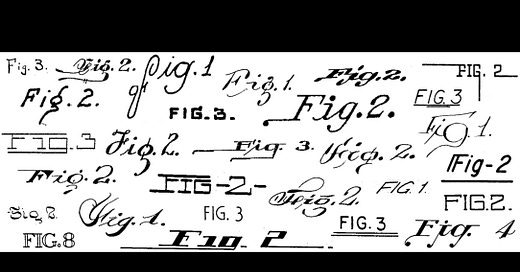 Fig. 3. Fig. 2. Fig. 1 Fig. 1. Fig. 2. FIG. 2
Fig. 2. FIG. 3. Fig. 2. FIG. 3 Fig. 1.
FIG. 3 Fig. 2. Fig. 3. Fig. 2. Fig-2
Fig. 2. FIG-2- Fig. 2. FIG. 1. FIG. 2.
Fig. 2. Fig. 1. FIG. 3 FIG. 3 Fig. 4
FIG. 8 Fig. 2